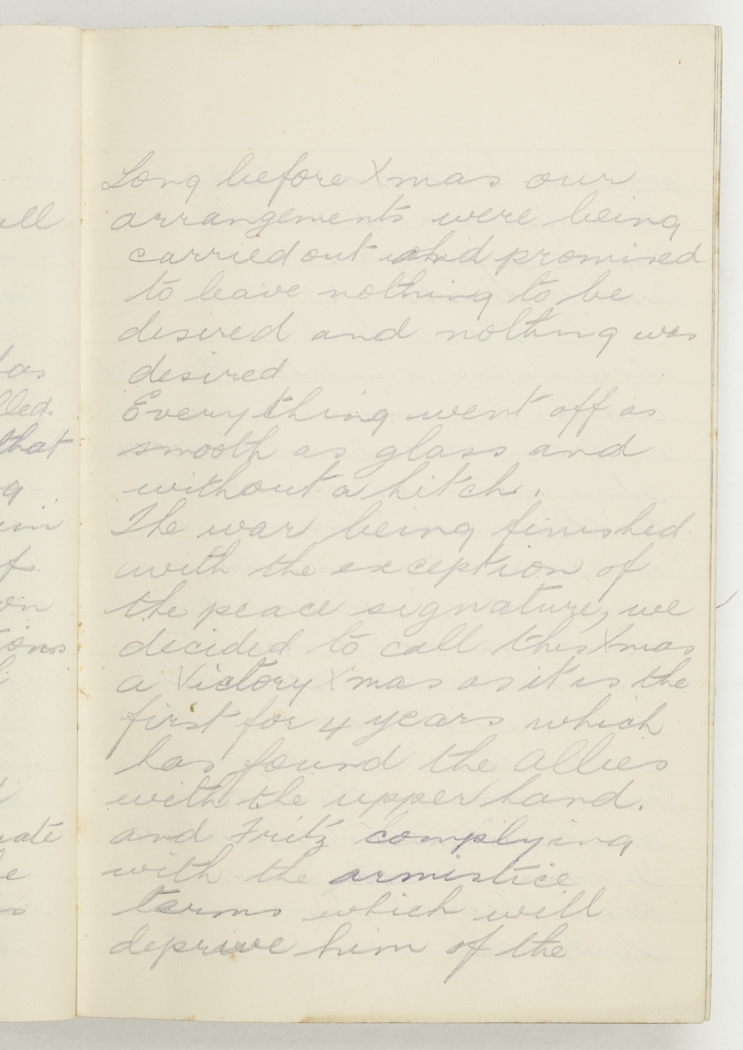 Long before Xmas our
arrangements were being
carried out and promised
to leave nothing to be
desired and nothing was
desired
Everything went off as
smooth as glass and
without a hitch.
The war being finished
with the exception of
the peace signature, we
decided to call this Xmas
a Victory Xmas as it is the
first for 4 years which
has found the allies
with the upper hand.
and Fritz complying
with the armistice
terms which will
deprive him of the